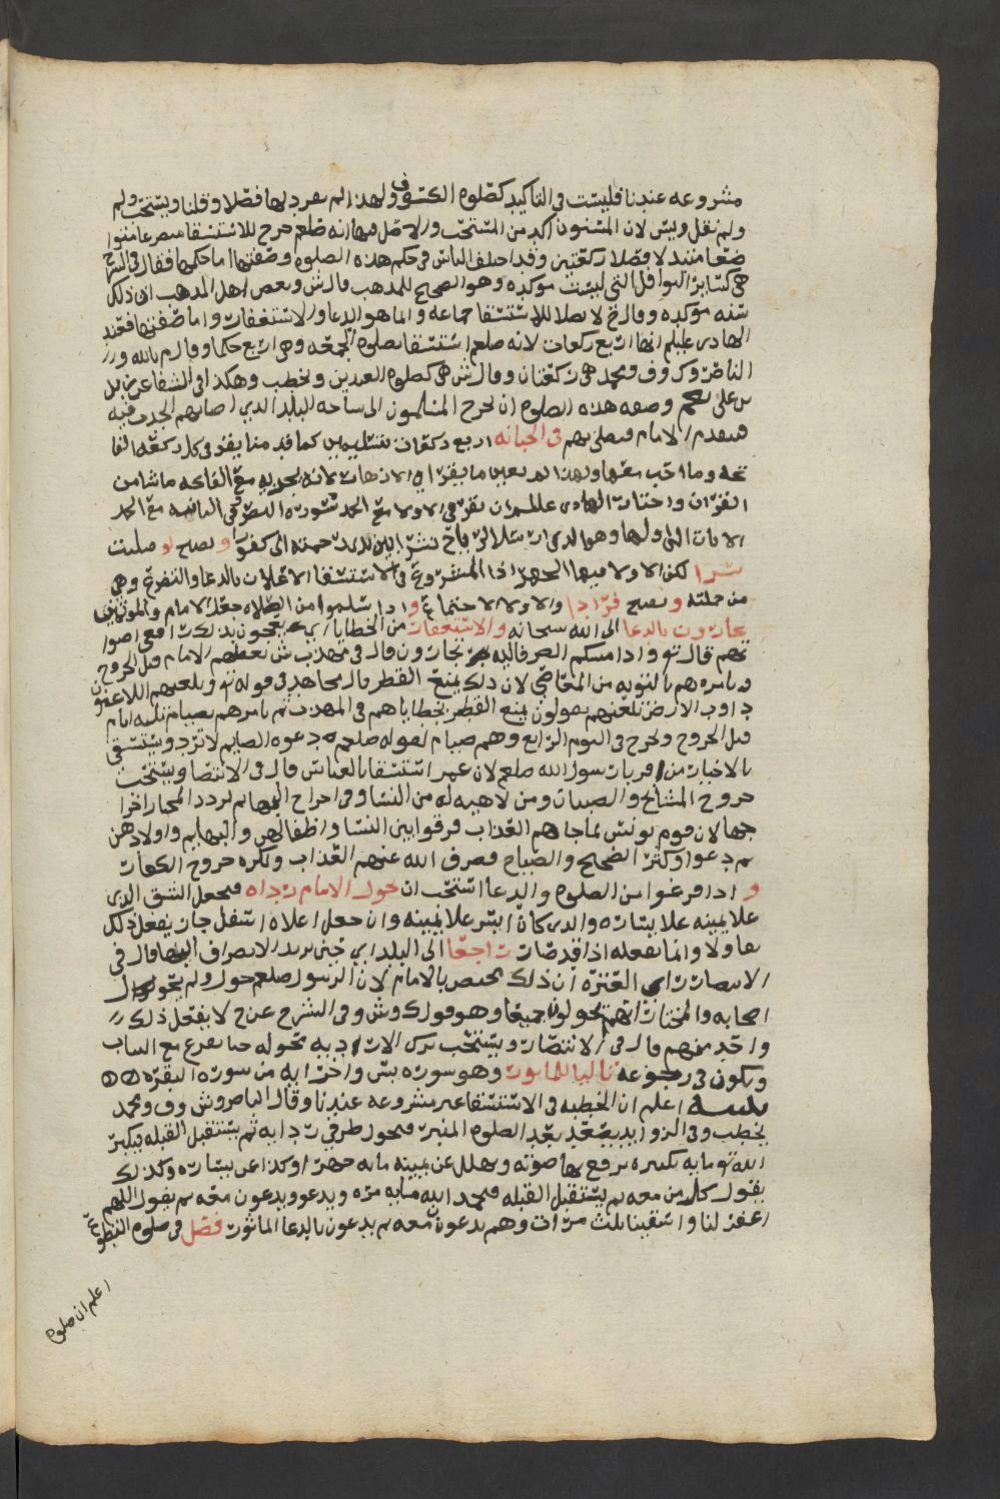 مشروعه عندنا فليست في التاكيد كصلوه الكسوف ولهذا لم يفرد لها فصلا وقلنا ويستحب ولم
ولم نقل ويسن لان المسنون اكد من المستحب والاصل فيها انه صلعم خرج للاستسقا
ركعتين وقد اختلف الناس في حكم هذه الصلوه وصفتها اما حكمها فقال في الشرح
هي كسائر النوافل التي ليست موكده وهو الصحيح للمذهب وقال ش وبعض اهل المذهب ان ذلك
سنه موكده وقال ح لا يصلا للاستسقا جماعه وانما هو الدعا والاستغفار واما صفتها فعند
الهادي عليلم انها اربع ركعات لانه صلعم استسقا بصلوه الجمعه وهي اربع حكما وقال م بالله و
الناصر وك وف ومحمد هي ركعتان وقال ش هي كصلوه العيدين ويخطب وهكذا في الشفا عن
وصفه هذه الصلوه ان يخرج المسلمون الى ساحه البلد الذي اصابهم الجدب فيه
فيتقدم الامام فيصلي بهم في الجبانه اربع ركعات بتسليمين كما قدمنا يقرا في كل ركعه الفا
تحه وما احب معها ولهذا لم يعين ما يقرا فيه الازهار لانه يجزيه مع الفاتحه ما شا من
القران واختار الهادي عليلم ان يقرا في الاولا مع الحمد سوره النصر وفي الثانيه مع الحمد
الايات التي اولها وهو الذي ارسل الرياح نشرا بين يدي رحمته الى كفورا ويصح لو صليت
سرا لكن الاولا فيها الجهر اذا المشروع في الاستسقا الاعلان بالدعا والتضرع وهي
من جملته ويصح فرادا والاولا الاجتماع واذا سلموا من الصلاه جعل الامام والموتمين
يجارون بالدعا الى الله سبحانه والاستغفار من الخطايا اي يعجون بذلك رافعي اصوا
تهم قال تع واذا مسكم الضر فاليه تجارون قال في مهذب ش يعظهم الامام قبل الخروج
ويامرهم بالتوبه من المعاصي لان ذلك يمنع القطر قال مجاهد في قوله تع ويلعنهم اللاعنون
دواب الارض تلعنهم يقولون يمنع القطر بخطاياهم في المهذب ثم يامرهم بصيام ثلثه ايام
قبل الخروج ويخرج في اليوم الرابع وهم صيام لقوله صلعم دعوه الصايم لا ترد ويستسقى
بالاخيار من اقربا رسول الله صلعم لان عمر استسقا بالعباس قال في الانتصار ويستحب
خروج المشائخ والصبيان ومن لا هيئه له من النسا وفي اخراج البهايم تردد المختار اخرا
جها لان قوم يونس لما جاهم العذاب فرقوا بين النسا واطفالهن والبهايم واولادهن
ثم دعوا وكثر الضجيج والصياح فصرف الله عنهم العذاب ويكره خروج الكفار
و اذا فرغوا من الصلوه والدعا استحب ان حول الامام رداه فيجعل الشق الذي
علا يمينه علا يساره والذي كان ايسر علا يمينه وان جعل اعلاه اسفل جاز يفعل ذلك
تفاولا وانما يفعله اذا قد صار راجعا الى البلد اي حين يريد الانصراف اليها قال في
الانتصار راي العتره ان ذلك يختص بالامام لان الرسول صلعم حول ولم يحول
اصحابه والمختار انهم يحولون جميعا وهو قول ك وش وفي الشرح عن ح لا يفعل ذلك
واحد منهم قال في الانتصار ويستحب ترك الارديه محوله حتا تنزع مع الثياب
ويكون في رجوعه تاليا للماثور وهو سوره يس واخر ايه من سوره البقره
تنبيه اعلم ان الخطبه في الاستسقا غير مشروعه عندنا وقال الناصر وش وف ومحمد
يخطب وفي الزوايد يصعد بعد الصلوه المنبر فيحول طرفي ردايه ثم يستقبل القبله فيكبر
الله تع مايه تكبيره يرفع بها صوته ويهلل عن يمينه مايه جهرا وكذا عن يساره وكذلك
يقول كل من معه ثم يستقبل القبله فيحمد الله مايه مره ويدعو ويدعون معه ثم يقول اللهم
اغفر لنا واسقينا ثلث مرات وهم يدعون معه ثم يدعون بالدعا الماثور فصل في صلوه التطوع
اعلم ان صلوه